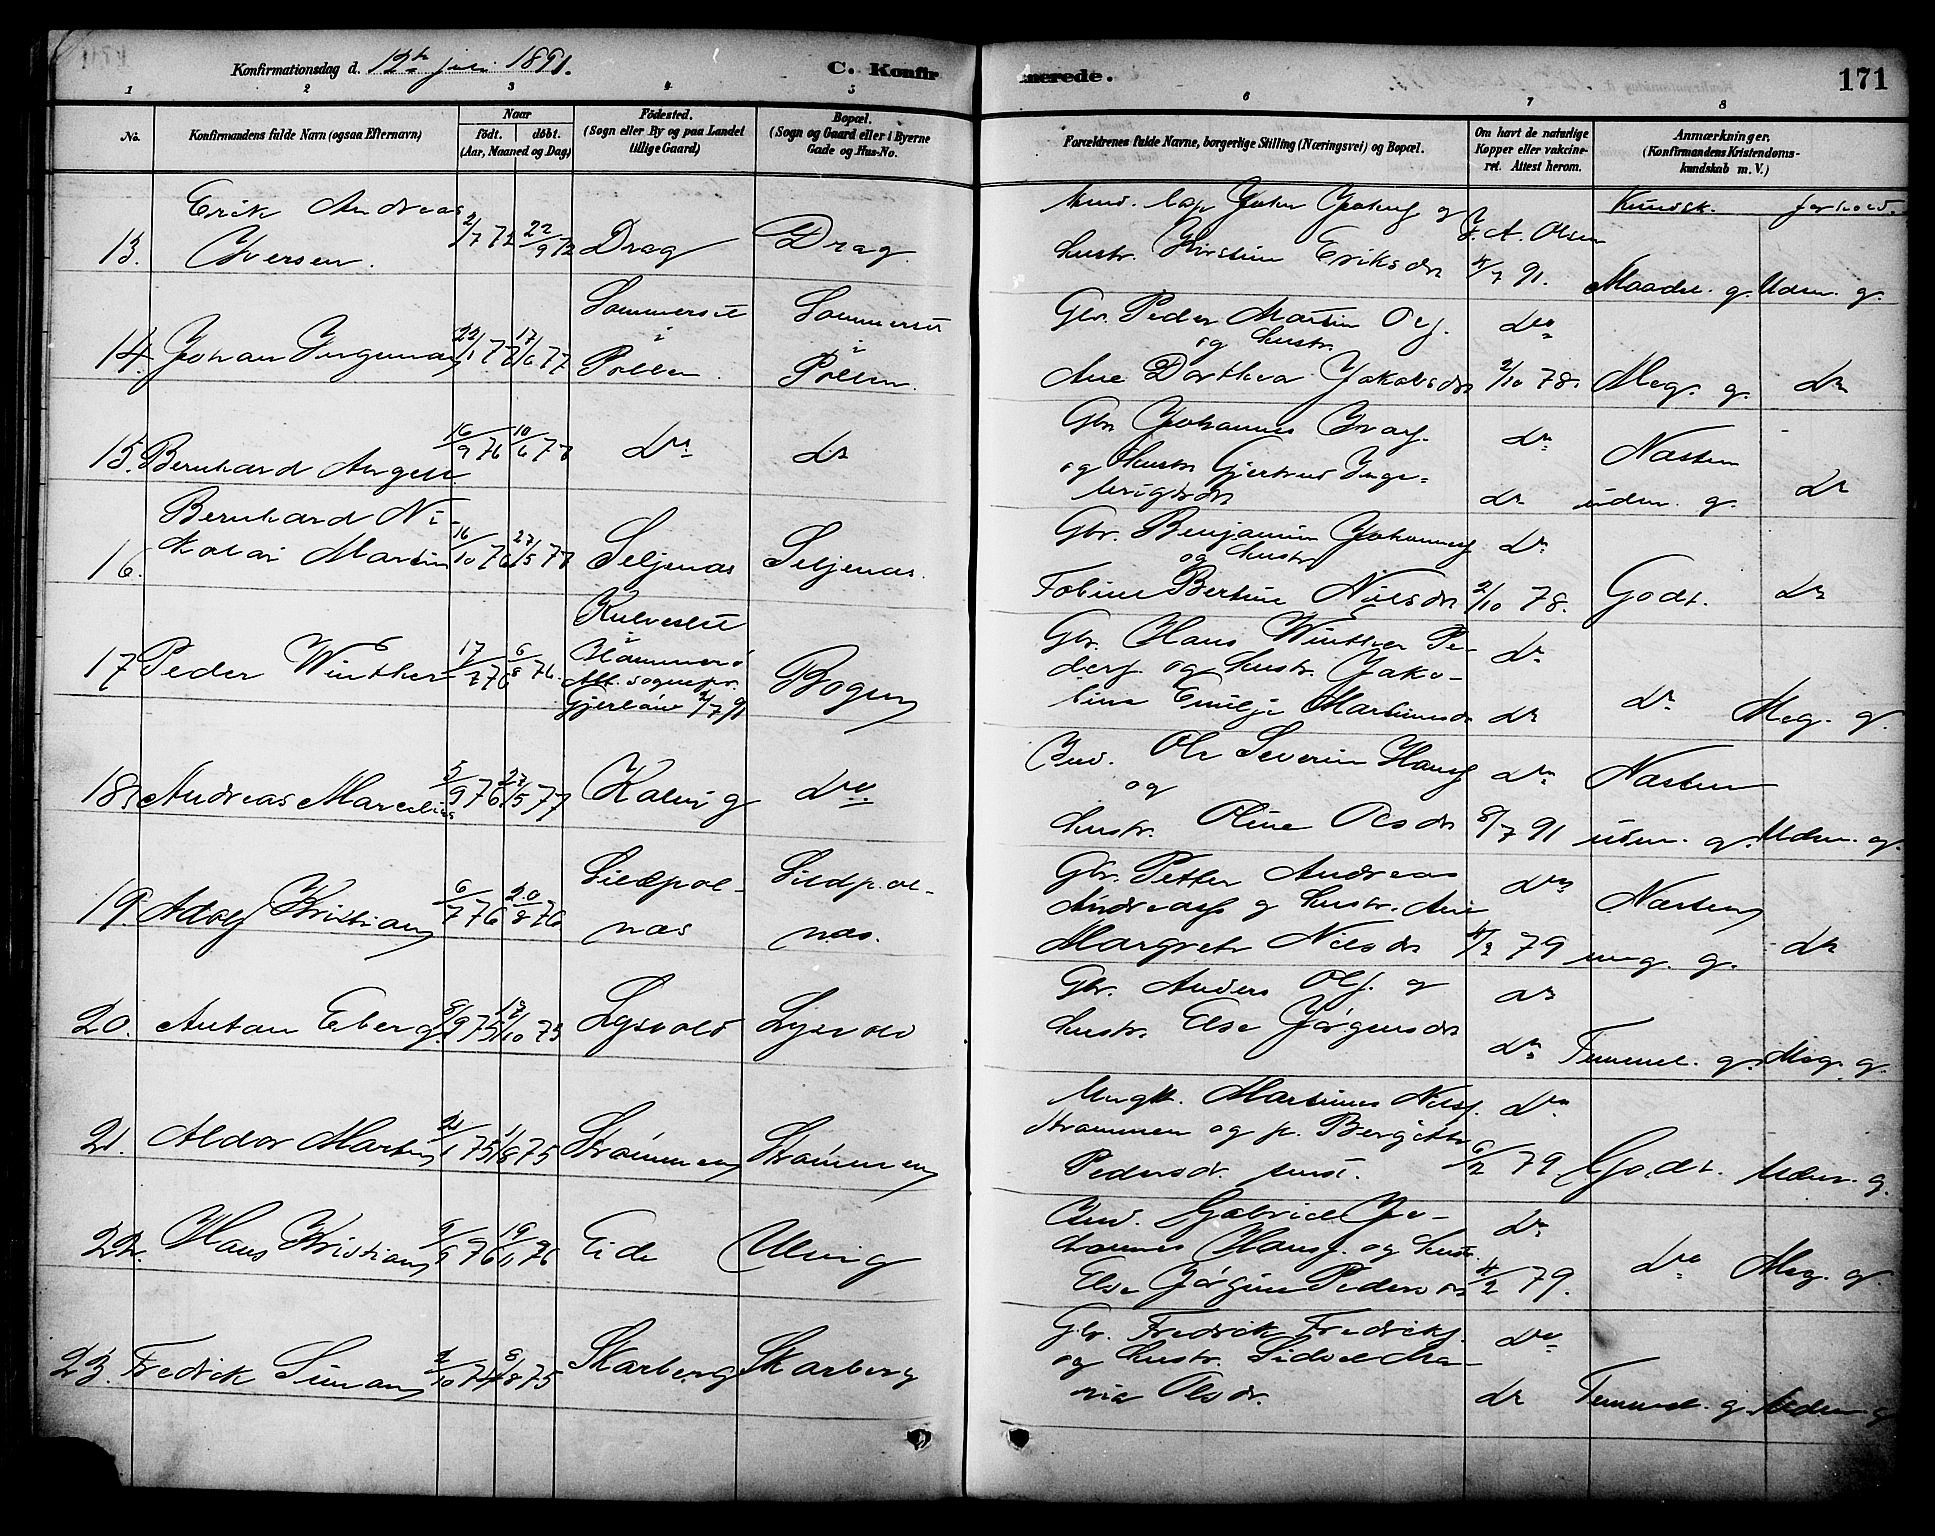 Konfirmationsdag d. 12te juli 1891.
C. Konfirmerede.
171
1 2 3 4 5 6 7 8
No.
Konfirmandens fulde Navn (ogsaa Efternavn)
Naar
født. døbt.
(Aar, Maaned og Dag)
Fødested.
(Sogn eller By og paa Landet
tillige Gaard)
Bopæl.
(Sogn og Gaard eller i Byerne
Gade og Hus-No.
Forældrenes fulde Navne, borgerlige Stilling (Næringsvei) og Bopæl.
Om havt de naturlige
Kopper eller vakcine-
ret. Attest herom.
Anmærkninger,
(Konfirmandens Kristendoms-
kundskab m. V.)
Kundsk. forhold.
13. Erik Andreas
Iversen. 2/7 72 22/9 72 Drag Drag
hustr. Kirstine Eriksdr
J. A. Olsen
4/7 91. Maadel. g. Udm. g.
14. Johan Jurgen 22/1 77 17/6 77 Sommerset
i
Pollen. Sommerset
i
Pollen.
Gbr. Peder Martin Olsf.
og hustr.
Ane Dorthea Jakobsdr
do
2/10 78. Meg. g. do
15. Bernhard Angell 16/9 76 10/6 77 do do
Gbr Johannes
og hustr Gjertrud Inge-
brigtsdr
do
do
Næsten
udm. g. do
16. Bernhard Ni-
kolai Martin 16/10 76 27/5 77 Seljenæs Seljenæs.
Gbr. Benjamin Johannesf
og hustr
Tobine Bertine Nilsdr
do
2/10 78. Godt. do
17 Peder Winther 17/ 76 6/8 76. Kulveslet
Hammerø
Att. sognepr.
Gjerløw 2/7 91 Bogen
Gbr. Hans Winther Pe-
dersf. og hustr. Jako-
bine Emilje Martinusdr
do
do
do Meg. g.
18. Andreas Marcelius 5/9 76 27/5 77 Kalvig do
Ind. Ole Severin Hansf
og
hustr. Oline Olsdr
do
8/7 91
Næsten
udm. g. Udm. g.
19. Adolf Kristian 6/7 76 20/8 76 Sildpol-
næs Sildpol-
næs.
Gbr. Petter Andreas
Andreasf og hustr. Ane
Margrete Nilsdr
do
4/2 79
Næsten
meg. g. do
20. Antan Eberg. 8/9 75 12/10 75 Lysvold Lysvold
Gbr. Anders Olsf. og
hustr. Else Jørgensdr
do
do Temmel. g. Meg. g.
21. Aldor Martin 21/1 75 1/8 75 Strømmen Strømmen
Ungk. Martinus Nilsf.
Strømmen og p. Bergitte
Pedersdr
do
6/2 79 Godt. Udm. g.
22. Hans Kristian 9/9 76 19/11 76 Eide Ulvig
Ind. Gabriel Jo-
hannes Hansf. og hustr.
Else Jørgine Pedersdr
do
4/2 79. do Meg. g.
23. Fredrik Siman 2/10 74 8/8 75 Skarberg Skarberg
Gbr. Fredrik Fredriksf.
og hustr. Sidsel Ma-
ria Olsdr.
do
do Temmel. g. Udm. g